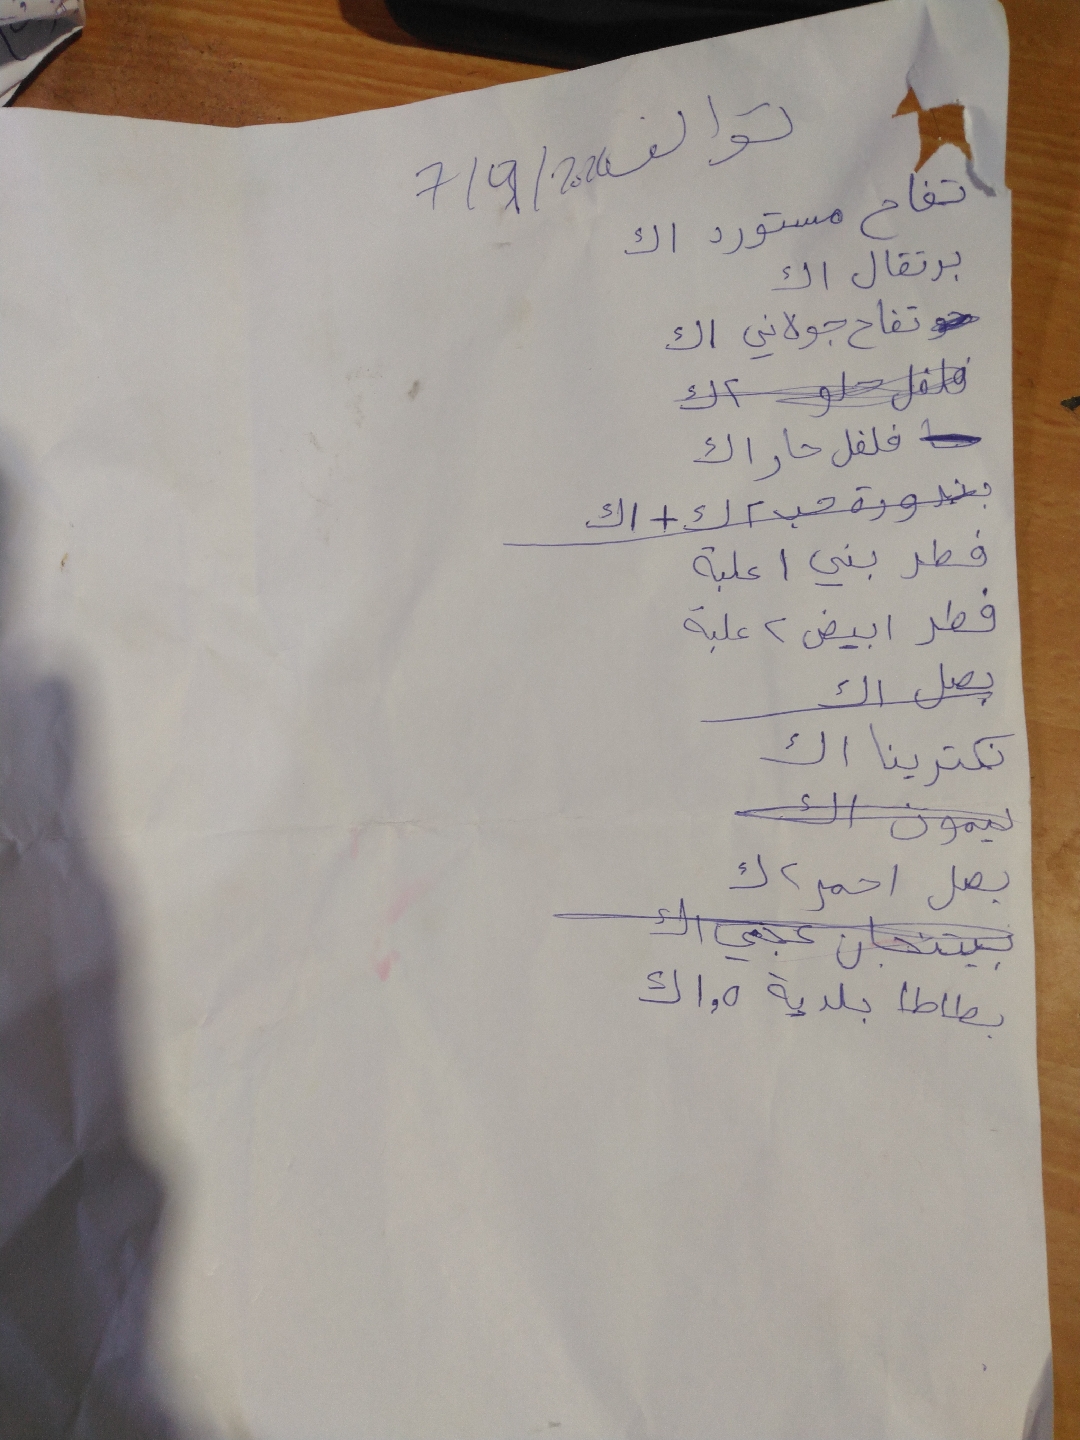 توالف 7/9/2024
تفاح مستورد ١ك
برتقال ١ك
تفاح جولاني ١ك
فلفل حلو ٢ك
فلفل حار ١ك
بندورة حب ٢ك + ١ك
فطر بني ١ علبة
فطر ابيض ٢ علبة
بصل ١ك
نكترينا ١ك
ليمون ١ك
بصل احمر ٢ك
بيتنجان عجمي ١ك
بطاطا بلدية ١,٥ك